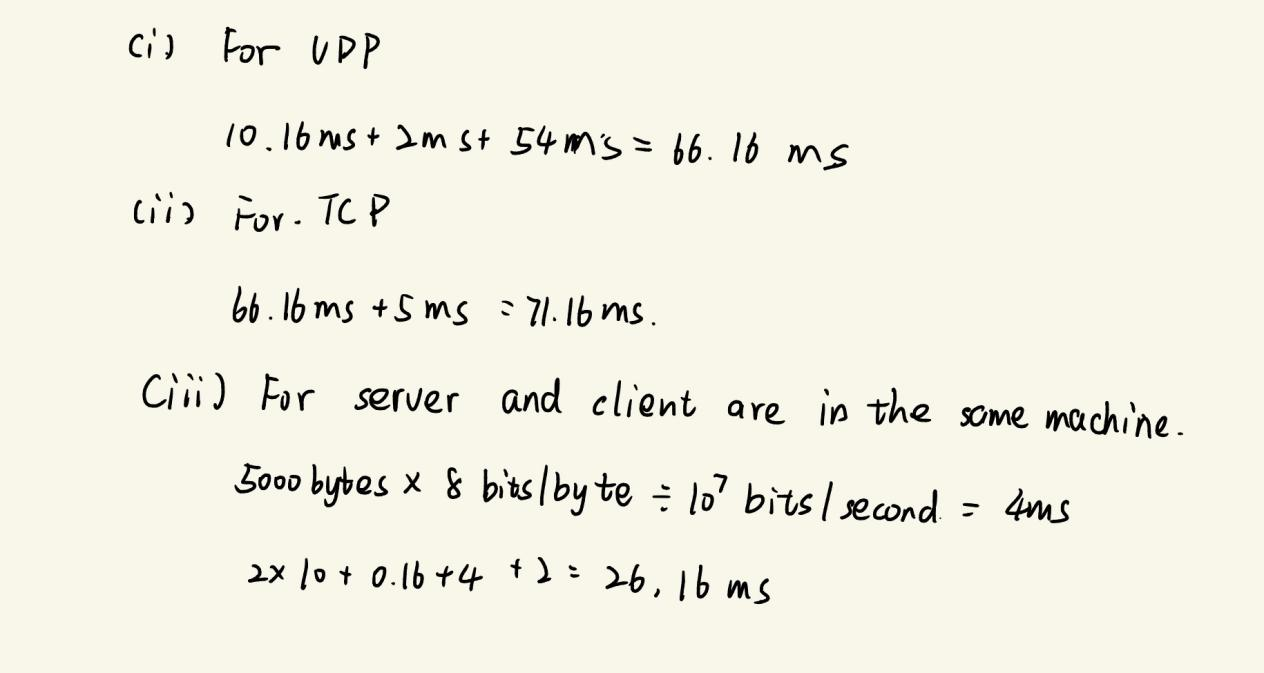 (i) For UDP
10.16ms + 2ms + 54ms = 66.16 ms
(ii) For. TCP
66.16ms + 5ms = 71.16ms.
(iii) For server and client are in the same machine.
5000 bytes × 8 bits/byte ÷ 10⁷ bits/second. = 4ms
2× 10 + 0.16 + 4 + 2 = 26,16 ms